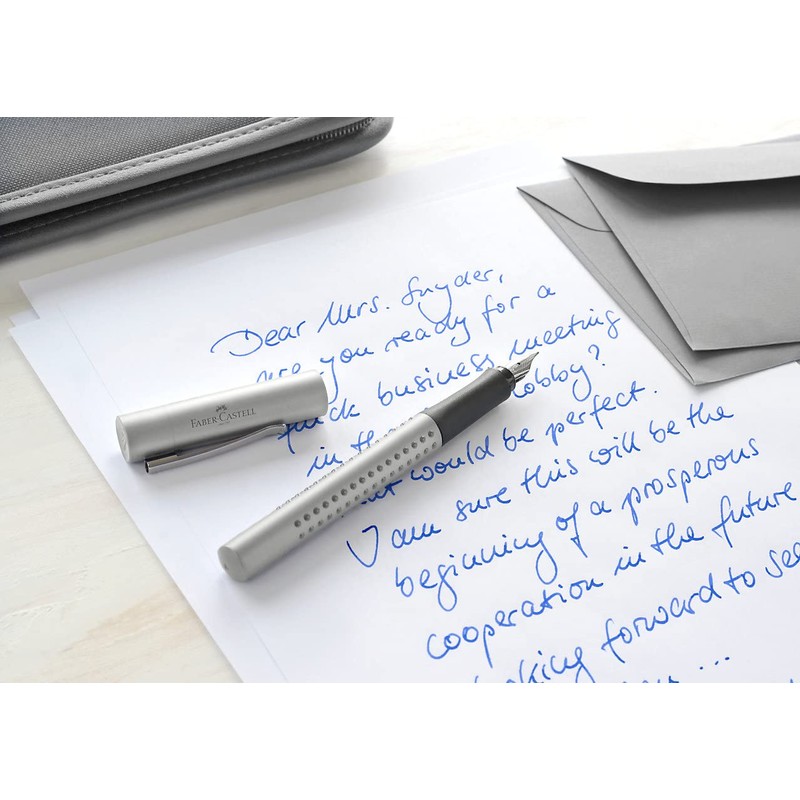 Dear Mrs. Snyder,
are you ready for a
business meeting
in the lobby?
would be perfect.
I am sure this will be the
beginning of a prosperous
cooperation in the future
looking forward to see
...
FABER-CASTELL